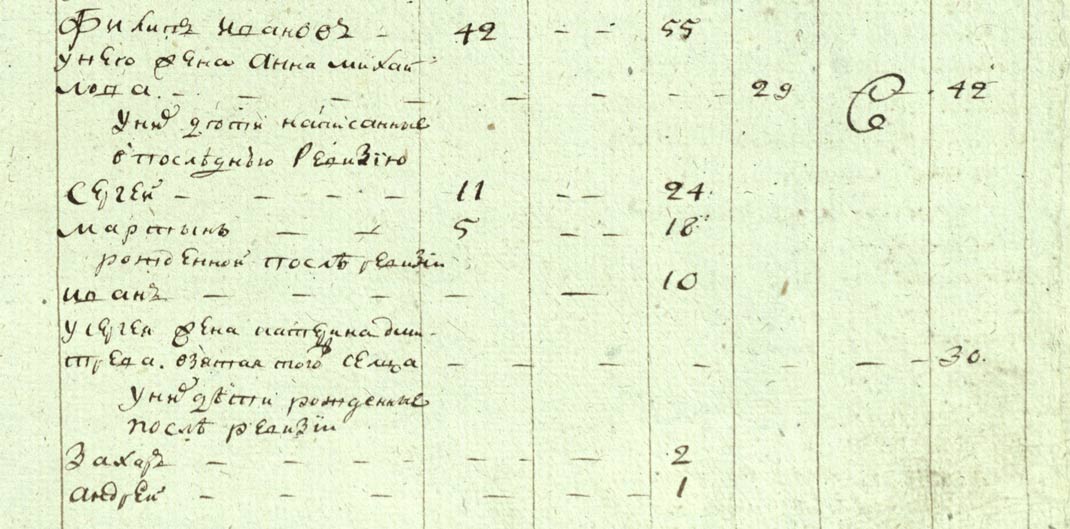 Филипъ ивановъ - 42 - - 55
унего жена анна михаи
лова. - - - - - - - - 29 - 42
уних дѣти написанные
впослѣднѣю Ревизїю
Сергеи - - - - 11 - - 24.
мартынъ - - 5 - - 18
рожденной послѣ ревизїи
иванъ - - - - - 10
усергея жена катерина дми
трева. взятая того селца - - - - - - - 30.
уних дѣти рожденные
послѣ ревизїи
Захаръ - - - - - 2
андреи - - - - - - 1